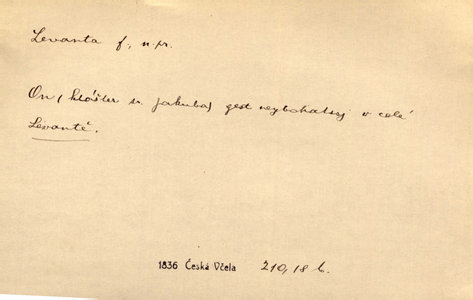 Levanta f., n. pr.
On (klášter sv. Jakuba) gest neybohatsj v celé
Levantě.
1836 Česká Včela 210, 18 b.